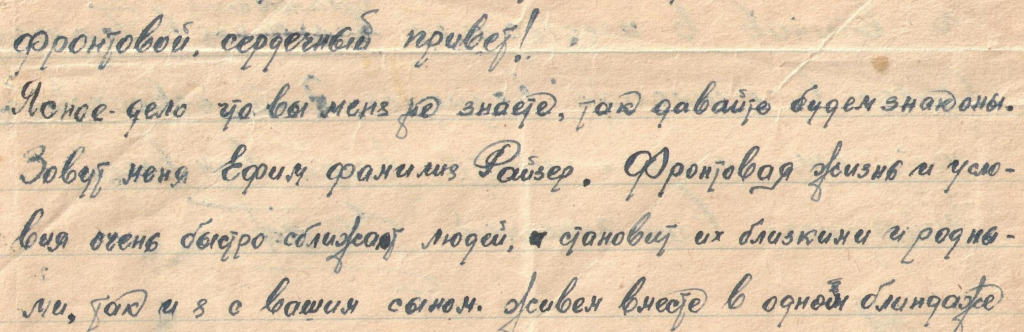 фронтовой, сердечный привет!
Ясное-дело что вы меня не знаете, так давайте будем знакомы.
Зовут меня Ефим фамилия Райзер. Фронтовая жизнь и усло-
вия очень быстро сближают людей, и становит их близкими и родны-
ми, так и я с вашим сыном. живем вместе в одном блиндаже